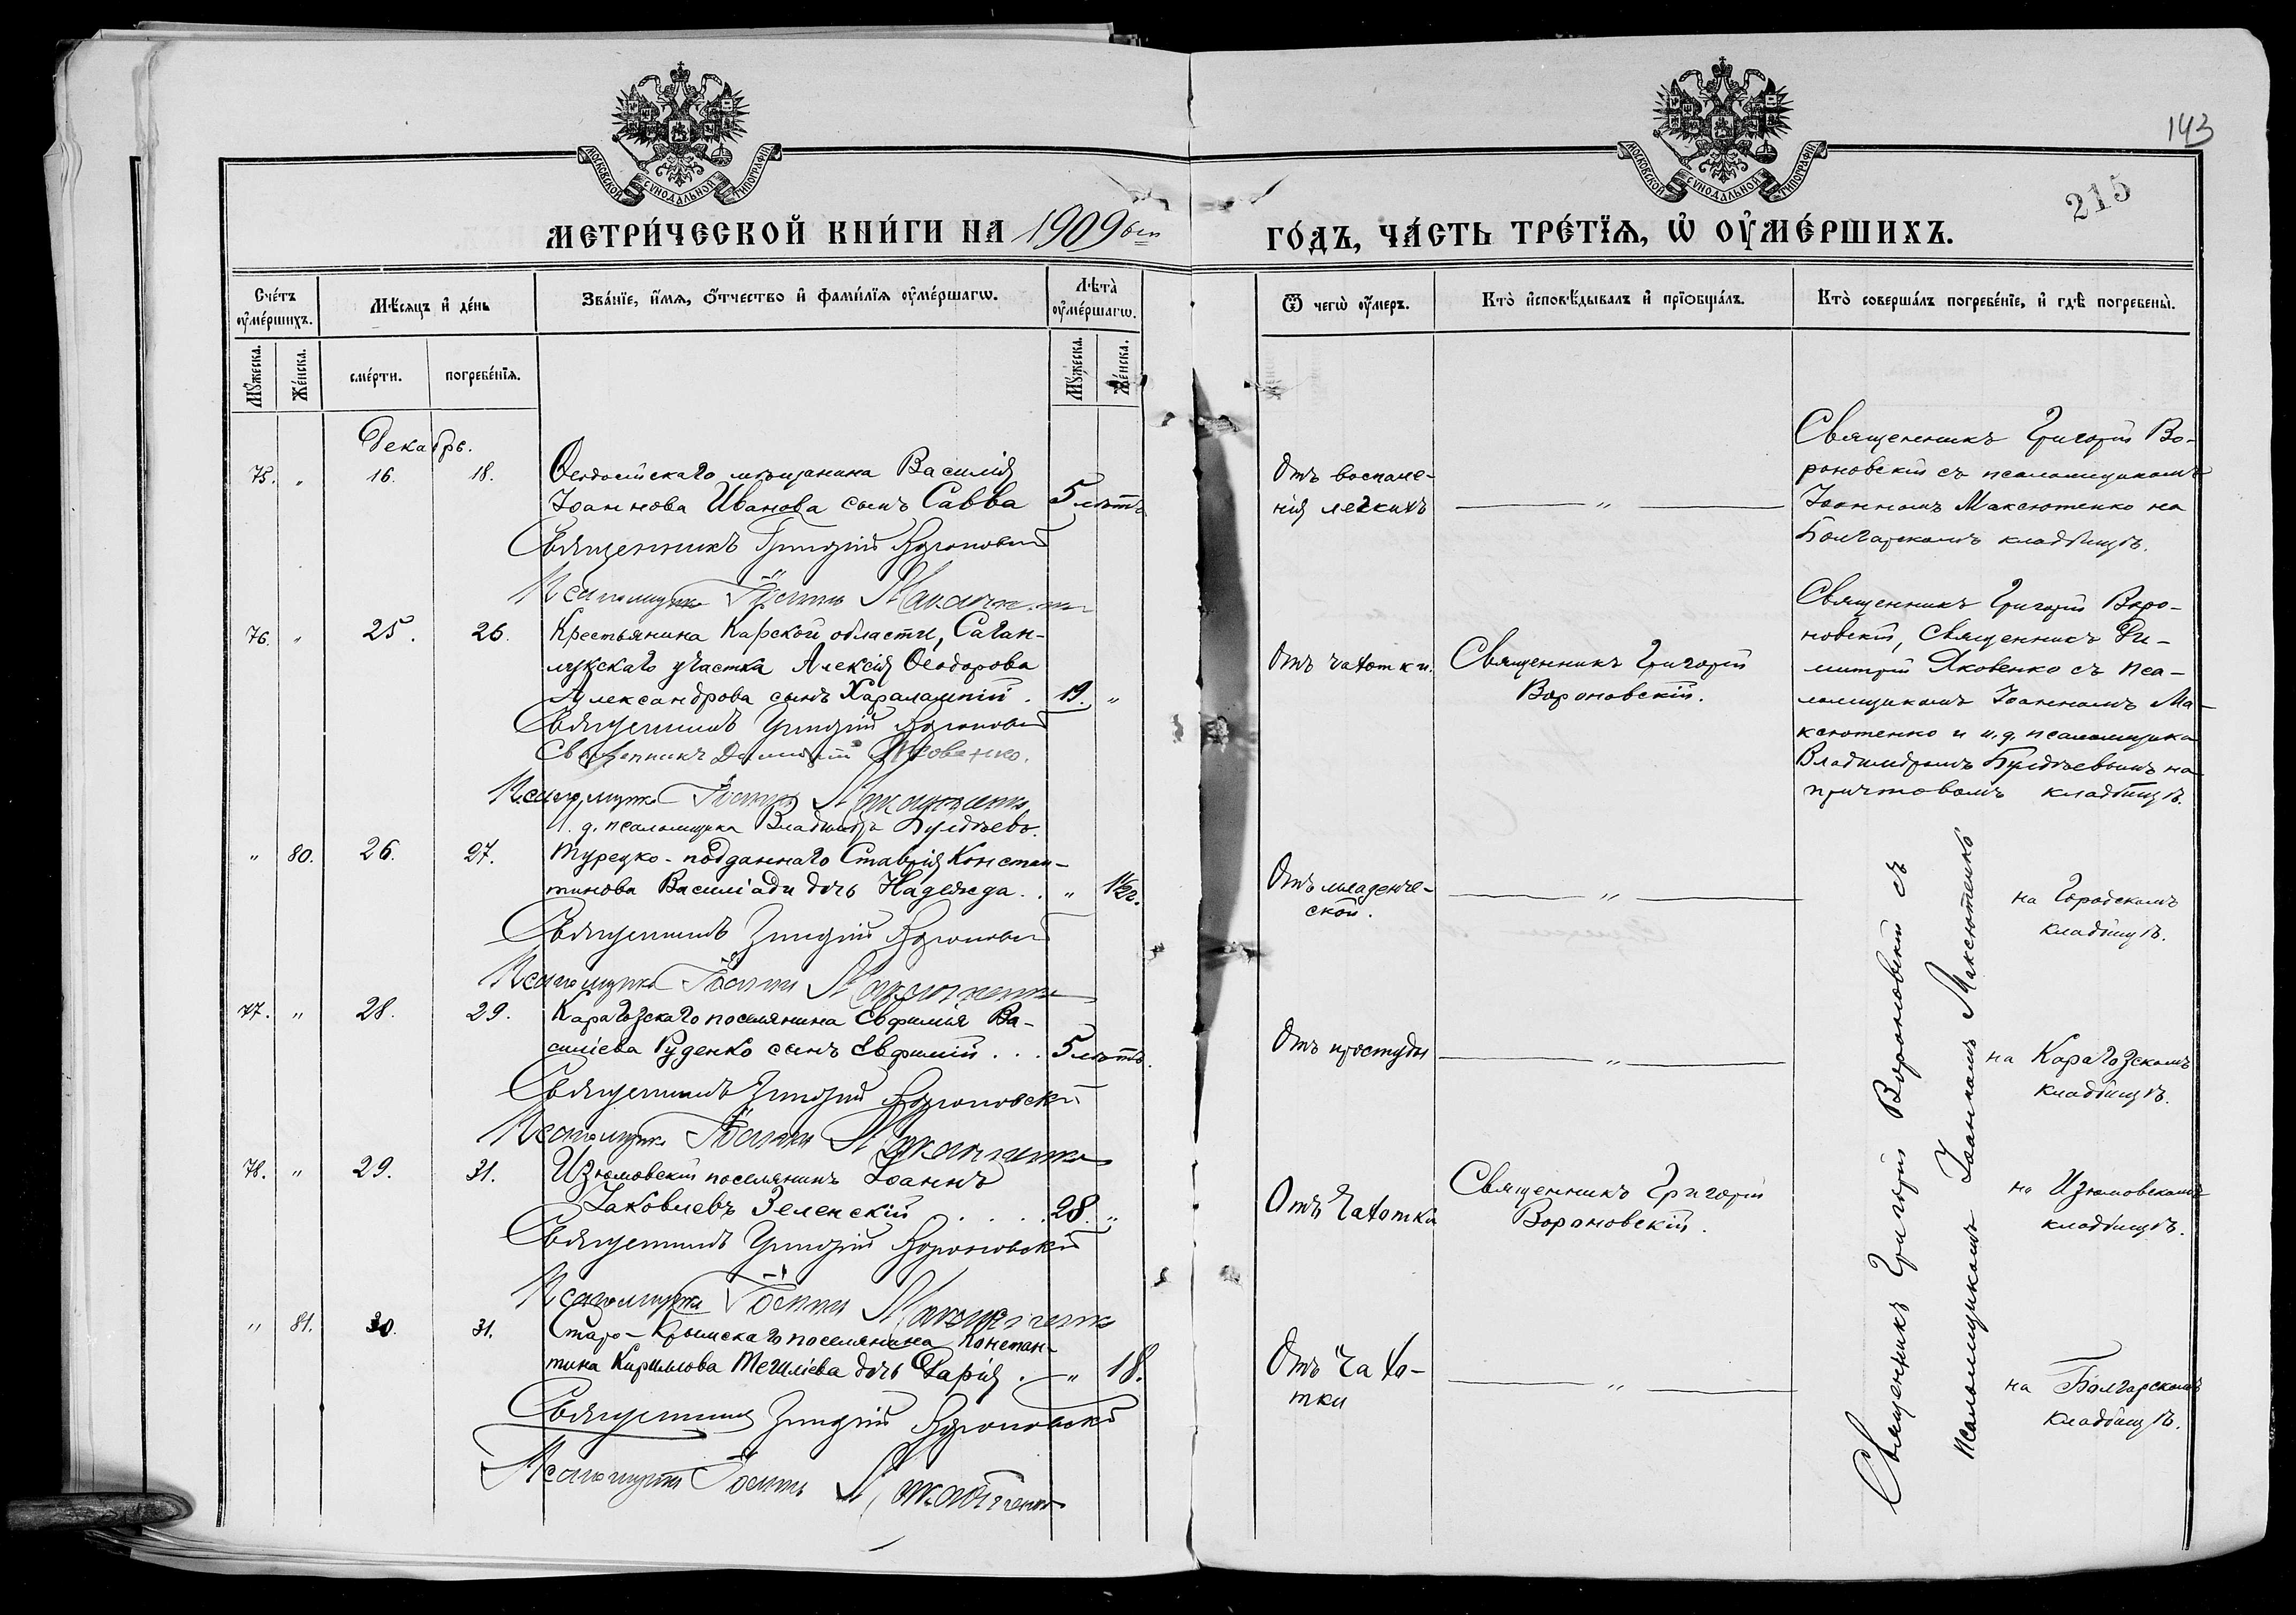 МОСКОВСКОЙ СѴНОДАЛЬНОЙ ТИПОГРАФІИ
МОСКОВСКОЙ СѴНОДАЛЬНОЙ ТИПОГРАФІИ
143
215
МЕТРИ́ЧЕСКОЙ КНИ́ГИ НА 1909 ый
ГО́ДЪ, ЧА́СТЬ ТРЕ́ТЇѦ, Ѡ҆ ОУ҆МЕ́РШИХЪ.
Сче́тъ оу҆ме́ршихъ.
Мѣ́сѧцъ и҆ де́нь
Зва́нїе, и҆́мѧ, ѻ҆́тчество и҆ фамилїѧ оу҆ме́ршагѡ.
Лѣ́та̀ оу҆ме́ршагѡ.
Ѿ чегѡ̀ оу҆́меръ.
Кто̀ и҆сповѣ́дывалъ и҆ прїѡбща́лъ.
Кто̀ соверша́лъ погребе́нїе, и҆ гдѣ̀ погребены̀.
Мꙋ́жеска.
Же́нска.
сме́рти.
погребе́нїѧ.
Мꙋ́жеска.
Же́нска.
Декабрь.
75. " 16. 18. Ѳеодосійскаго мѣщанина Василія
Іоаннова Иванова сынъ Савва 5 лѣтъ
Священникъ Григорій Вороновскій
Псаломщикъ Іоаннъ Максютенко
Отъ воспале-
нія легкихъ
"
Священникъ Григорій Во-
роновскій съ псаломщикомъ
Іоанномъ Максютенко на
Болгарскомъ кладбищѣ.
76. " 25. 26. Крестьянина Карской области, Саган-
лукскаго участка Алексія Ѳеодорова
Александрова сынъ Харалампій . 19. "
Священникъ Григорій Вороновскій
Священникъ Димитрій Яковенко.
Псаломщикъ Іоаннъ Максютенко
И. д. псаломщика Владиміръ
Отъ чахотки.
Священникъ Григорій
Вороновскій.
Священникъ Григорій Воро-
новскій, Священникъ Ди-
митрій Яковенко съ пса-
ломщикомъ Іоанномъ Ма-
ксютенко и и.д. псаломщика
Владиміромъ на
причтовомъ кладбищѣ.
" 80. 26. 27. Турецко-подданнаго Ставрія Констан-
тинова Василіади дочь Надежда . . " 1½ г.
Священникъ Григорій Вороновскій
Псаломщикъ Іоаннъ Максютенко
Отъ младенче-
ской.
"
на Городскомъ
кладбищѣ.
77. " 28. 29. Карагозскаго поселянина Евфимія Ва-
силіева Руденко сынъ Евфимій . . . 5 лѣтъ.
Священникъ Григорій Вороновскій
Псаломщикъ Іоаннъ Максютенко
Отъ простуды
"
на Карагозскомъ
кладбищѣ.
78. " 29. 31. Изюмовскій поселянинъ Іоаннъ
Іаковлевъ Зеленскій . . . . 28. "
Священникъ Григорій Вороновскій
Псаломщикъ Іоаннъ Максютенко
Отъ чахотки
Священникъ Григорій
Вороновскій.
на Изюмовскомъ
кладбищѣ.
" 81. 30. 31. Старо-Крымскаго поселянина Констан-
тина Кириллова дочь Дарія . " 18.
Священникъ Григорій Вороновскій
Псаломщикъ Іоаннъ Максютенко
Отъ чахо-
тки
"
на Болгарскомъ
кладбищѣ.
Священникъ Григорій Вороновскій съ
псаломщикомъ Іоанномъ Максютенко